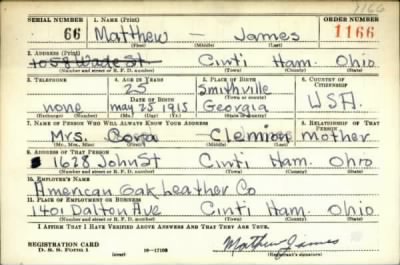 1166
SERIAL NUMBER 1. NAME (Print) ORDER NUMBER
66 Matthew — James 1166
(First) (Middle) (Last)
2. ADDRESS (Print)
1058 Wade St Cinti Ham. Ohio
(Number and street or R. F. D. number) (Town) (County) (State)
3. TELEPHONE 4. AGE IN YEARS 5. PLACE OF BIRTH 6. COUNTRY OF CITIZENSHIP
25 Smithville
DATE OF BIRTH (Town or county)
none May 25 1915 Georgia USA.
(Exchange) (Number) (Mo.) (Day) (Yr.) (State or country)
7. NAME OF PERSON WHO WILL ALWAYS KNOW YOUR ADDRESS 8. RELATIONSHIP OF THAT PERSON
Mrs. Cora — Clemion mother
(Mr., Mrs., Miss) (First) (Middle) (Last)
9. ADDRESS OF THAT PERSON
1628 John St Cinti Ham. Ohio
(Number and street or R. F. D. number) (Town) (County) (State)
10. EMPLOYER'S NAME
American Oak Leather Co
11. PLACE OF EMPLOYMENT OR BUSINESS
1401 Dalton Ave Cinti Ham. Ohio
(Number and street or R. F. D. number) (Town) (County) (State)
I AFFIRM THAT I HAVE VERIFIED ABOVE ANSWERS AND THAT THEY ARE TRUE.
REGISTRATION CARD
D. S. S. Form 1 16—17105 Matthew James
(over) (Registrant's signature)